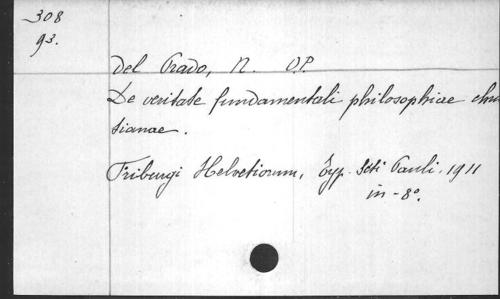 308
93.
del Prado, N. O.P.
De veritate fundamentali philosophiae chris
tianae.
Friburgi Helvetiorum, Typ. Scti Pauli. 1911
in-8°.